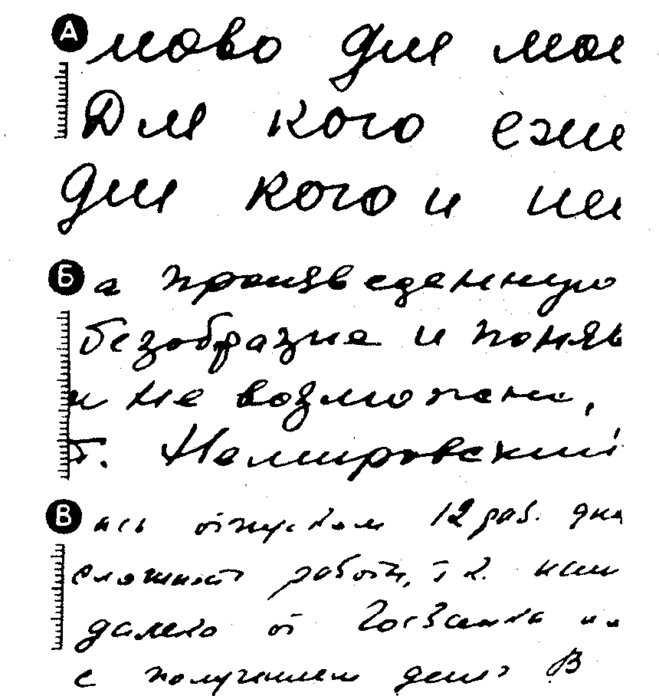 А мово для мое
Для кого ежи
для кого и ни
Б а произведенную
безобразие и поняв
и не возможно,
Т. Немировский
В ась отпуском 12 раб. дне
сложность работы, т.к. наш
далеко от Госбанка
с получением денег В